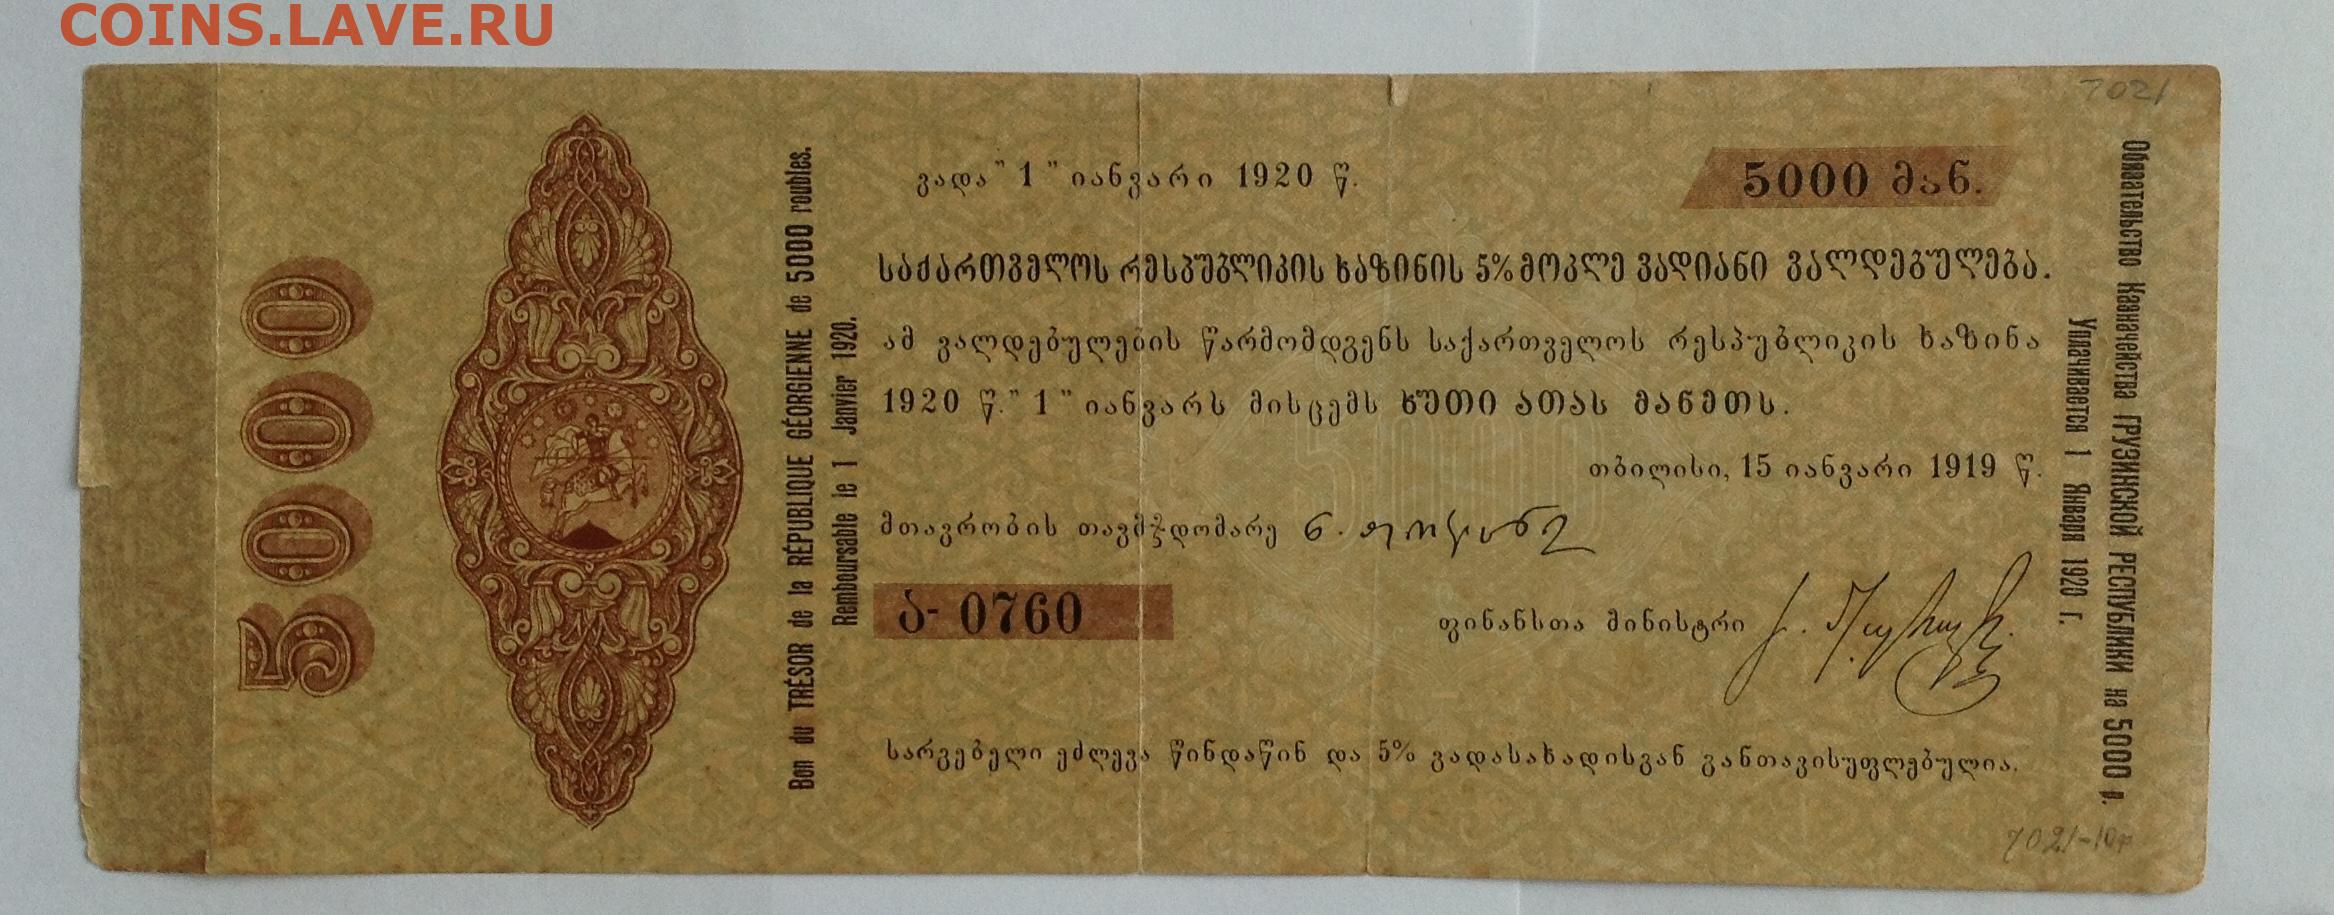 COINS.LAVE.RU
7021
5000
Bon du TRÉSOR de la RÉPUBLIQUE GÉORGIENNE de 5000 roubles.
Remboursable le 1 Janvier 1920.
ვადა " 1 " იანვარი 1920 წ.
5000 მან.
საქართველოს რესპუბლიკის ხაზინის 5% მოკლე ვადიანი ვალდებულება.
ამ ვალდებულების წარმომდგენს საქართველოს რესპუბლიკის ხაზინა
1920 წ. " 1 " იანვარს მისცემს ხუთი ათას მანეთს.
5000
თბილისი, 15 იანვარი 1919 წ.
მთავრობის თავმჯდომარე ნ. ჟორდანია
ა- 0760
ფინანსთა მინისტრი
სარგებელი ეძლევა წინდაწინ და 5% გადასახადისგან განთავისუფლებულია.
Обязательство Казначейства ГРУЗИНСКОЙ РЕСПУБЛИКИ на 5000 р.
Уплачивается 1 Января 1920 г.